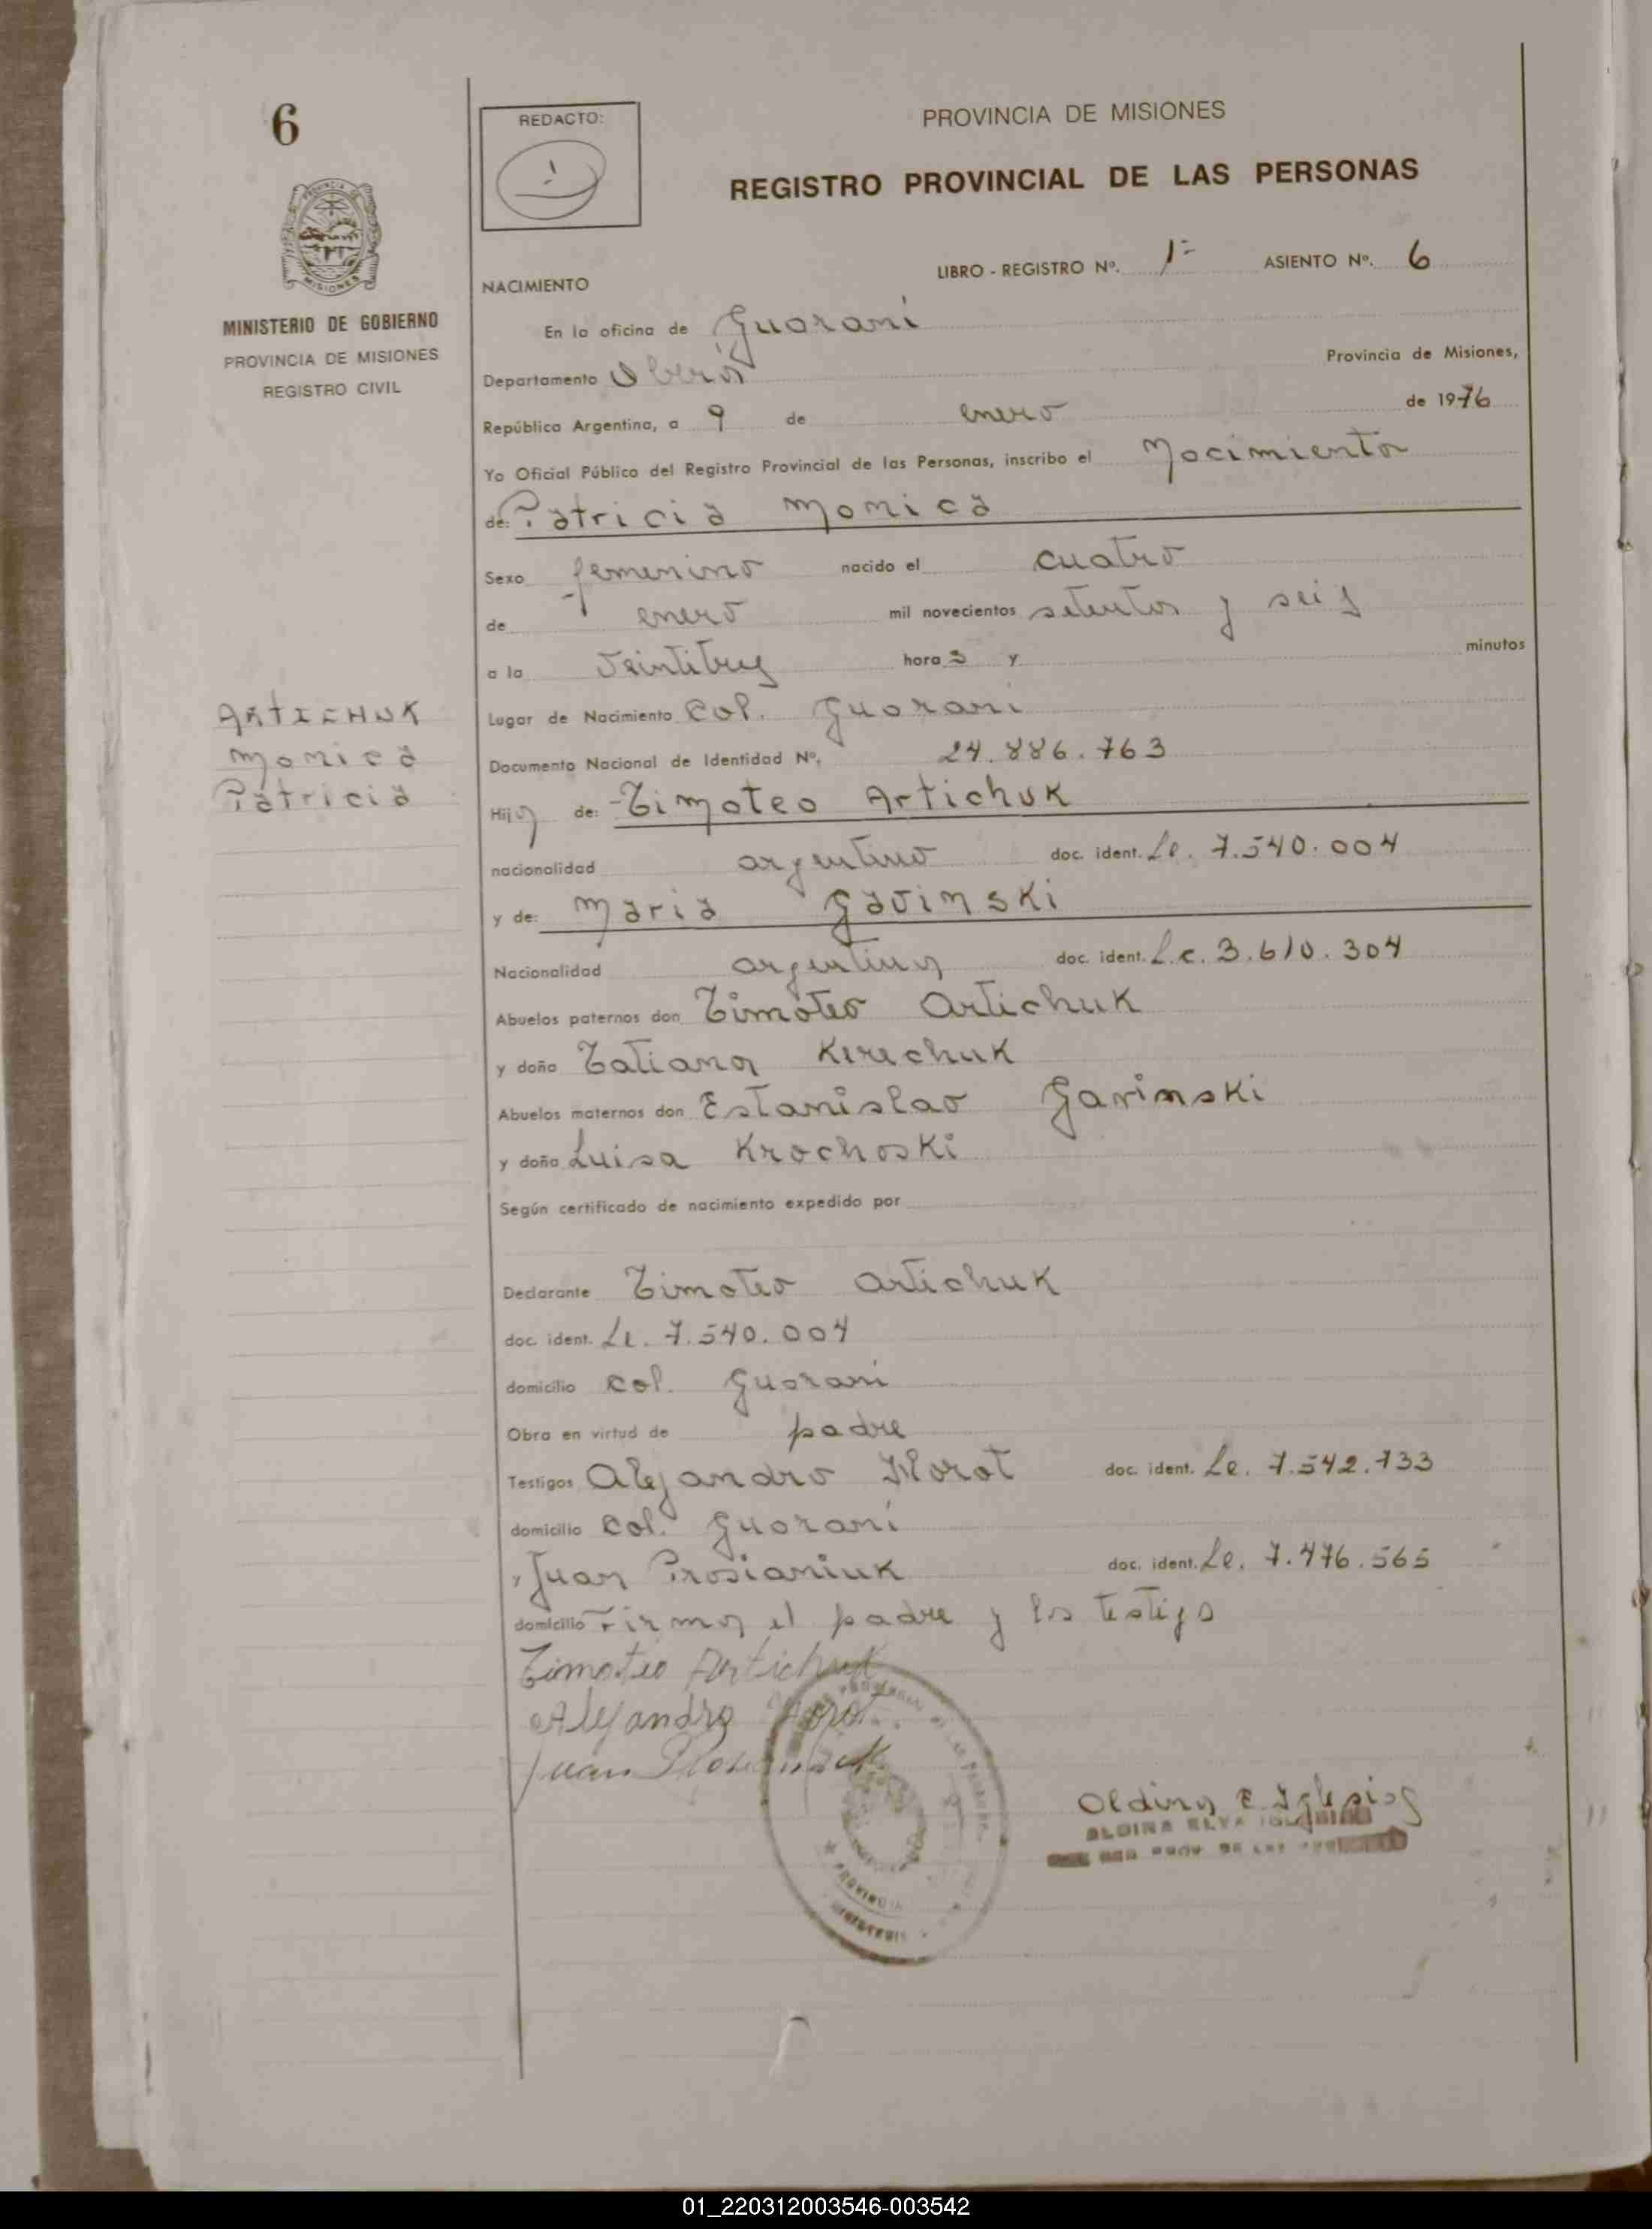 6
REDACTO:
PROVINCIA DE MISIONES
REGISTRO PROVINCIAL DE LAS PERSONAS
LIBRO - REGISTRO Nº. 1º ASIENTO Nº. 6
MINISTERIO DE GOBIERNO
PROVINCIA DE MISIONES
REGISTRO CIVIL
NACIMIENTO
En la oficina de Guarani
Departamento Oberá Provincia de Misiones,
República Argentina, a 9 de enero de 1976
Yo Oficial Público del Registro Provincial de las Personas, inscribo el Nacimiento
de: Patricia Monica
Sexo femenino nacido el cuatro
de enero mil novecientos setenta y seis
a la veintitres horas y minutos
ARTICHUK
Monica
Patricia
Lugar de Nacimiento Col. Guarani
Documento Nacional de Identidad Nº. 24.886.763
Hija de: Timoteo Artichuk
nacionalidad argentino doc. ident. Le. 7.540.004
y de: Maria Gavinski
Nacionalidad argentina doc. ident. L.c. 3.610.304
Abuelos paternos don Timoteo Artichuk
y doña Tatiana Kirichuk
Abuelos maternos don Estanislao Gavinski
y doña Luisa Krochoski
Según certificado de nacimiento expedido por
Declarante Timoteo Artichuk
doc. ident. Le. 7.540.004
domicilio Col. Guarani
Obra en virtud de padre
Testigos Alejandro doc. ident. Le. 7.542.733
domicilio Col. Guarani
y Juan Prosianiuk doc. ident. Le. 7.476.565
domicilio Firma el padre y los testigo
Timoteo Artichuk
Alejandro
Juan
Oldina E. Iglesias
ALDINA ELVA
01_220312003546-003542